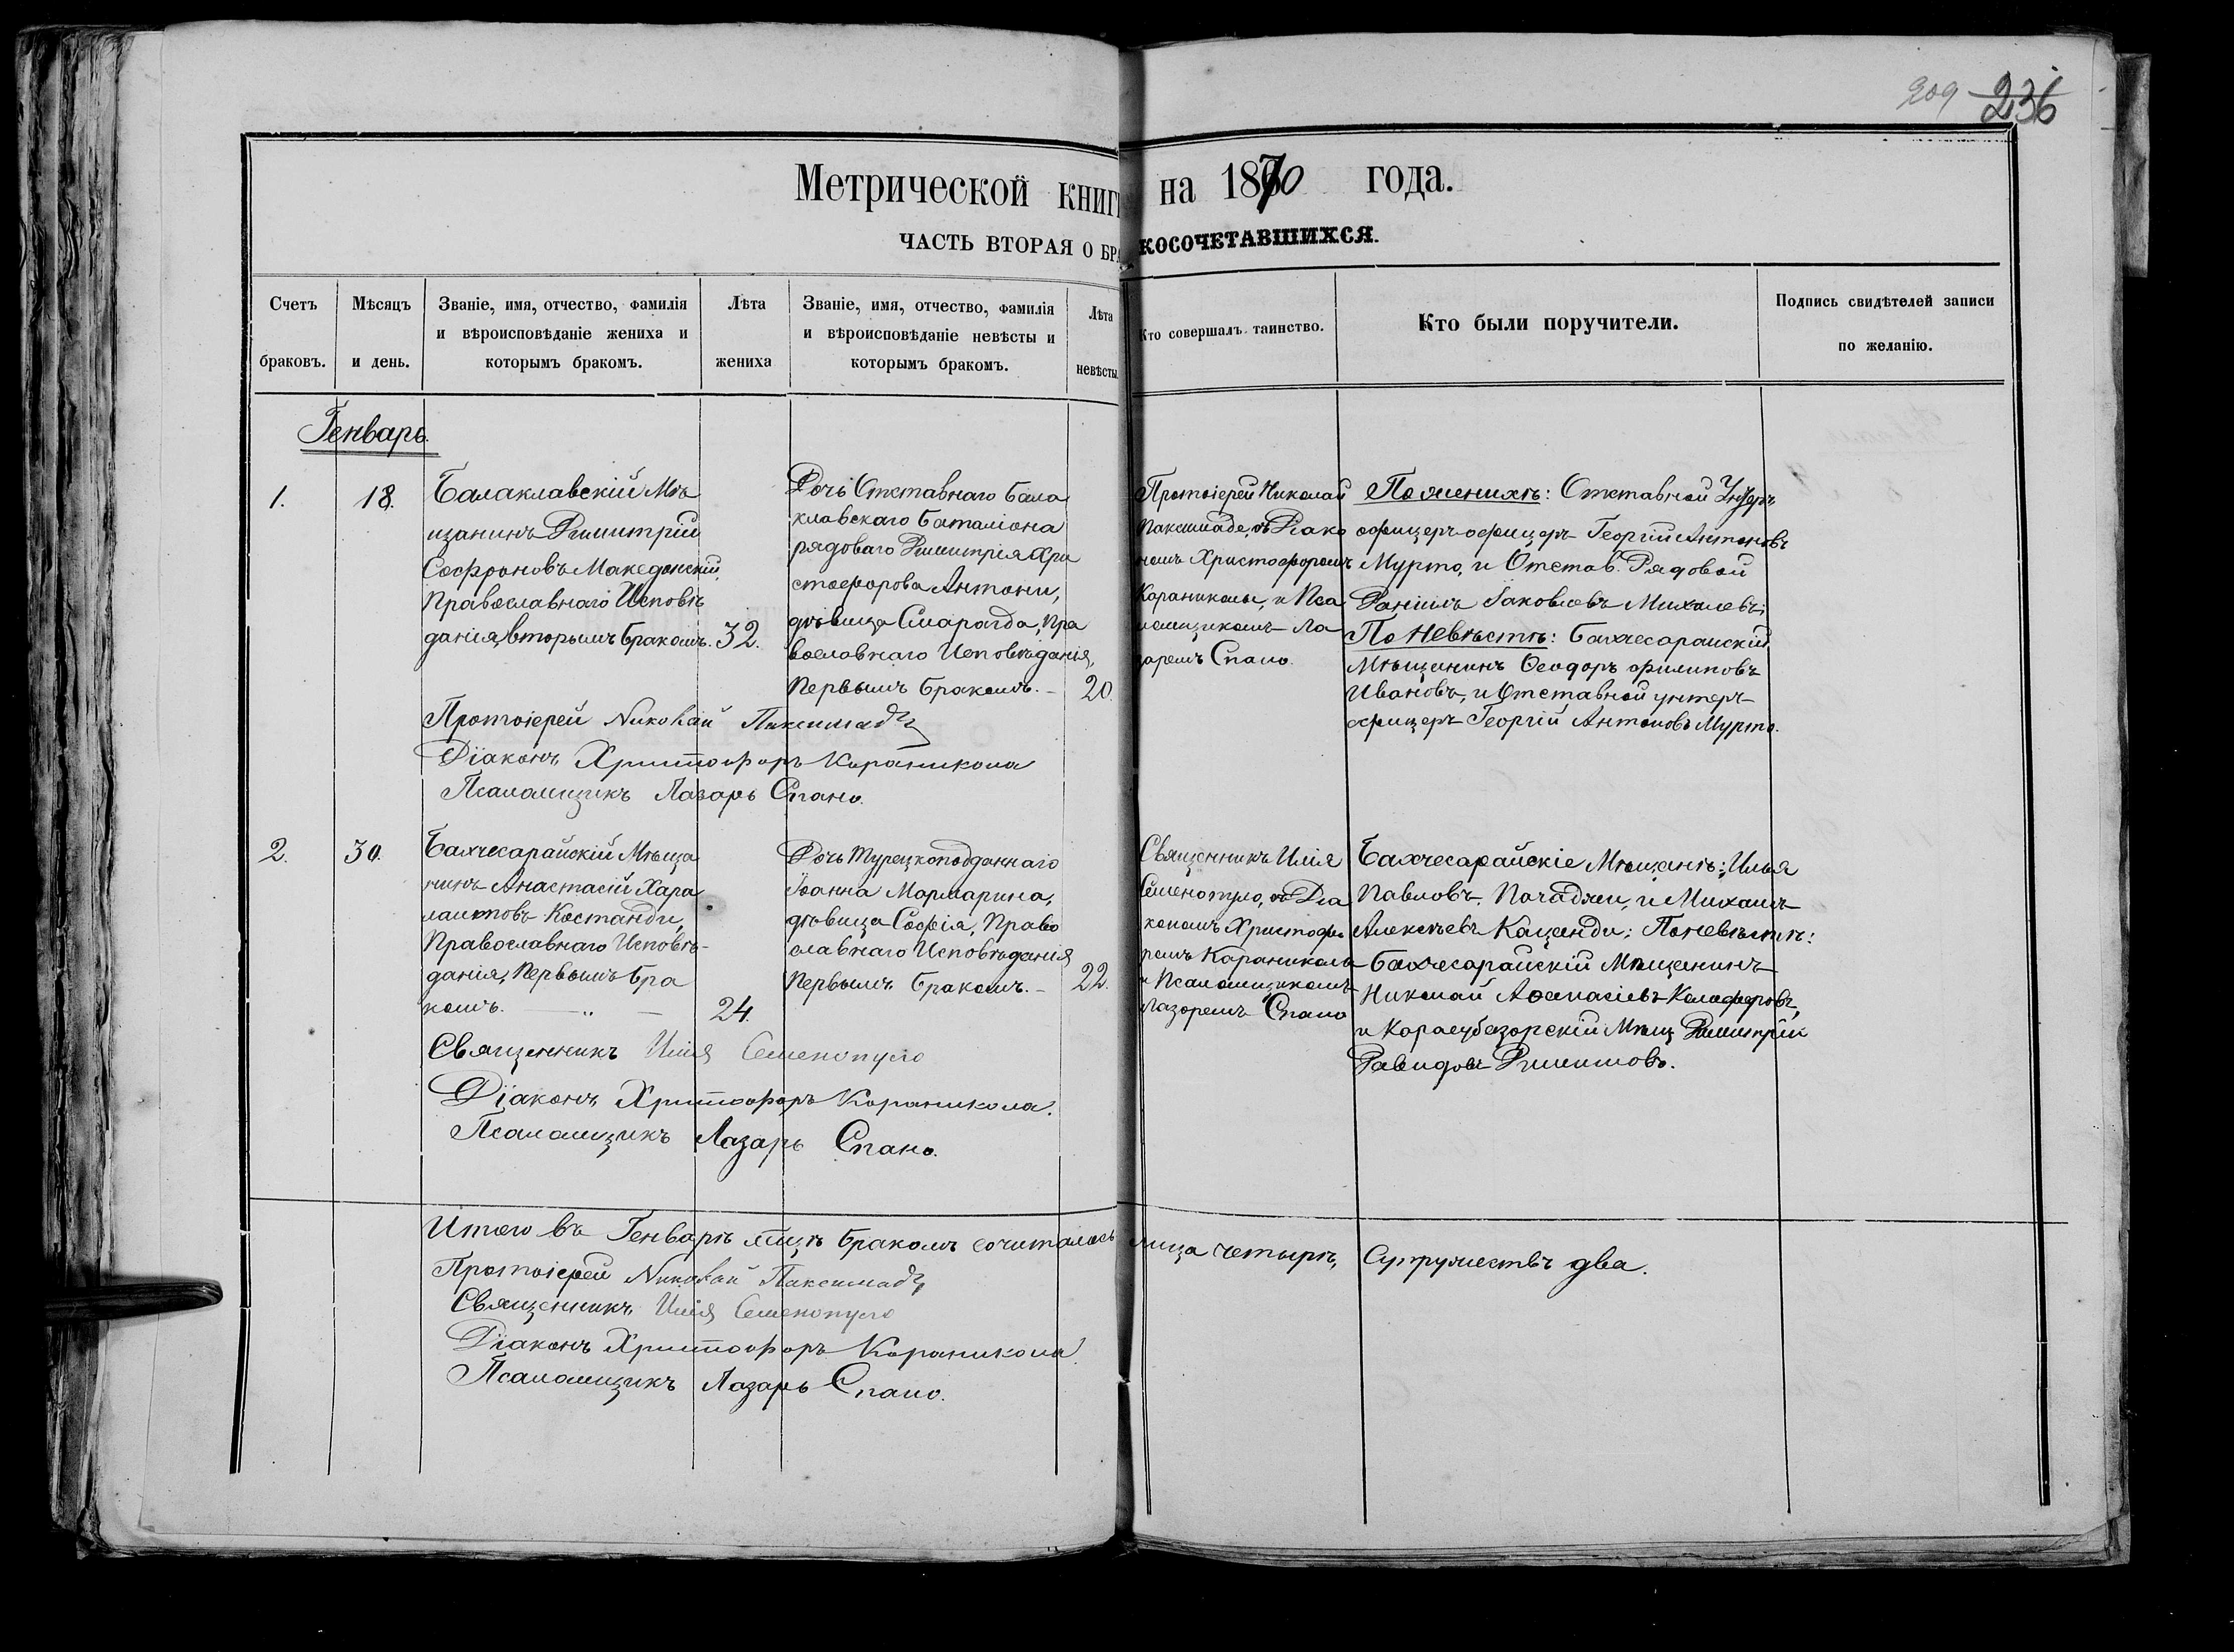 209 236
Метрической книги на 1870 года.
ЧАСТЬ ВТОРАЯ О БРАКОСОЧЕТАВШИХСЯ.
Счетъ браковъ.
Мѣсяцъ и день.
Званіе, имя, отчество, фамилія
и вѣроисповѣданіе жениха и
которымъ бракомъ.
Лѣта
жениха
Званіе, имя, отчество, фамилія
и вѣроисповѣданіе невѣсты и
которымъ бракомъ.
Лѣта
невѣсты.
Кто совершалъ таинство.
Кто были поручители.
Подпись свидѣтелей записи
по желанію.
Генварь.
1.
18.
Балаклавскій Мѣ
щанинъ Димитрій
Софроновъ Македонскій,
Православнаго Исповѣ
данія, вторымъ бракомъ.
32.
Дочь Отставнаго Бала
клавскаго Баталіона
рядоваго Димитрія Хри
стофорова Антони,
дѣвица Смарагда, Пра
вославнаго Исповѣданія,
Первымъ бракомъ. –
20.
Протоіерей Николай
Паксимаде, съ Діако
номъ Христофоромъ
Караниколы, и Пса
ломщикомъ Ла
заремъ Спано.
По женихѣ: Отставной Унтеръ
офицеръ офицеръ Георгій Антоновъ
Мурто, и Отстав. Рядовой
Даніилъ Іаковлевъ Михалевъ;
По Невѣстѣ: Бахчесарайскій
Мѣщанинъ Ѳеодоръ Филиповъ
Ивановъ, и Отставной унтеръ-
офицеръ Георгій Антоновъ Мурто.
Протоіерей Николай Паксимади
Діаконъ Христофоръ Караникола
Псаломщикъ Лазарь Спано.
2.
30.
Бахчесарайскій Мѣща
нинъ Анастасій Хара
ламповъ Костанди,
Православнаго Исповѣ-
данія, Первымъ бра
комъ. — „ —
24.
Дочь Турецкоподданнаго
Іоанна Мармарина,
дѣвица Софія, Право
славнаго Исповѣданія
Первымъ бракомъ. –
22.
Священникъ Илія
Семенопуло, съ Діа
кономъ Христофо
ромъ Караникола
и Псаломщикомъ
Лазаремъ Спано
Бахчесарайскіе Мѣщанѣ: Илья
Павловъ Пачаджи, и Михаилъ
Алексѣевъ Каценди; По невѣстѣ:
Бахчесарайскій Мѣщанинъ
Николай Аѳанасіевъ
и Карасубазарскій Мѣщ Димитрій
Давидовъ
Священникъ Илія Семенопуло
Діаконъ Христофоръ Караникола.
Псаломщикъ Лазарь Спано.
Итого въ Генварѣ м͠цѣ бракомъ сочиталось лица четырѣ, Супружествъ два.
Протоіерей Николай Паксимади
Священникъ Илія Семенопуло
Діаконъ Христофоръ Караникола.
Псаломщикъ Лазарь Спано.